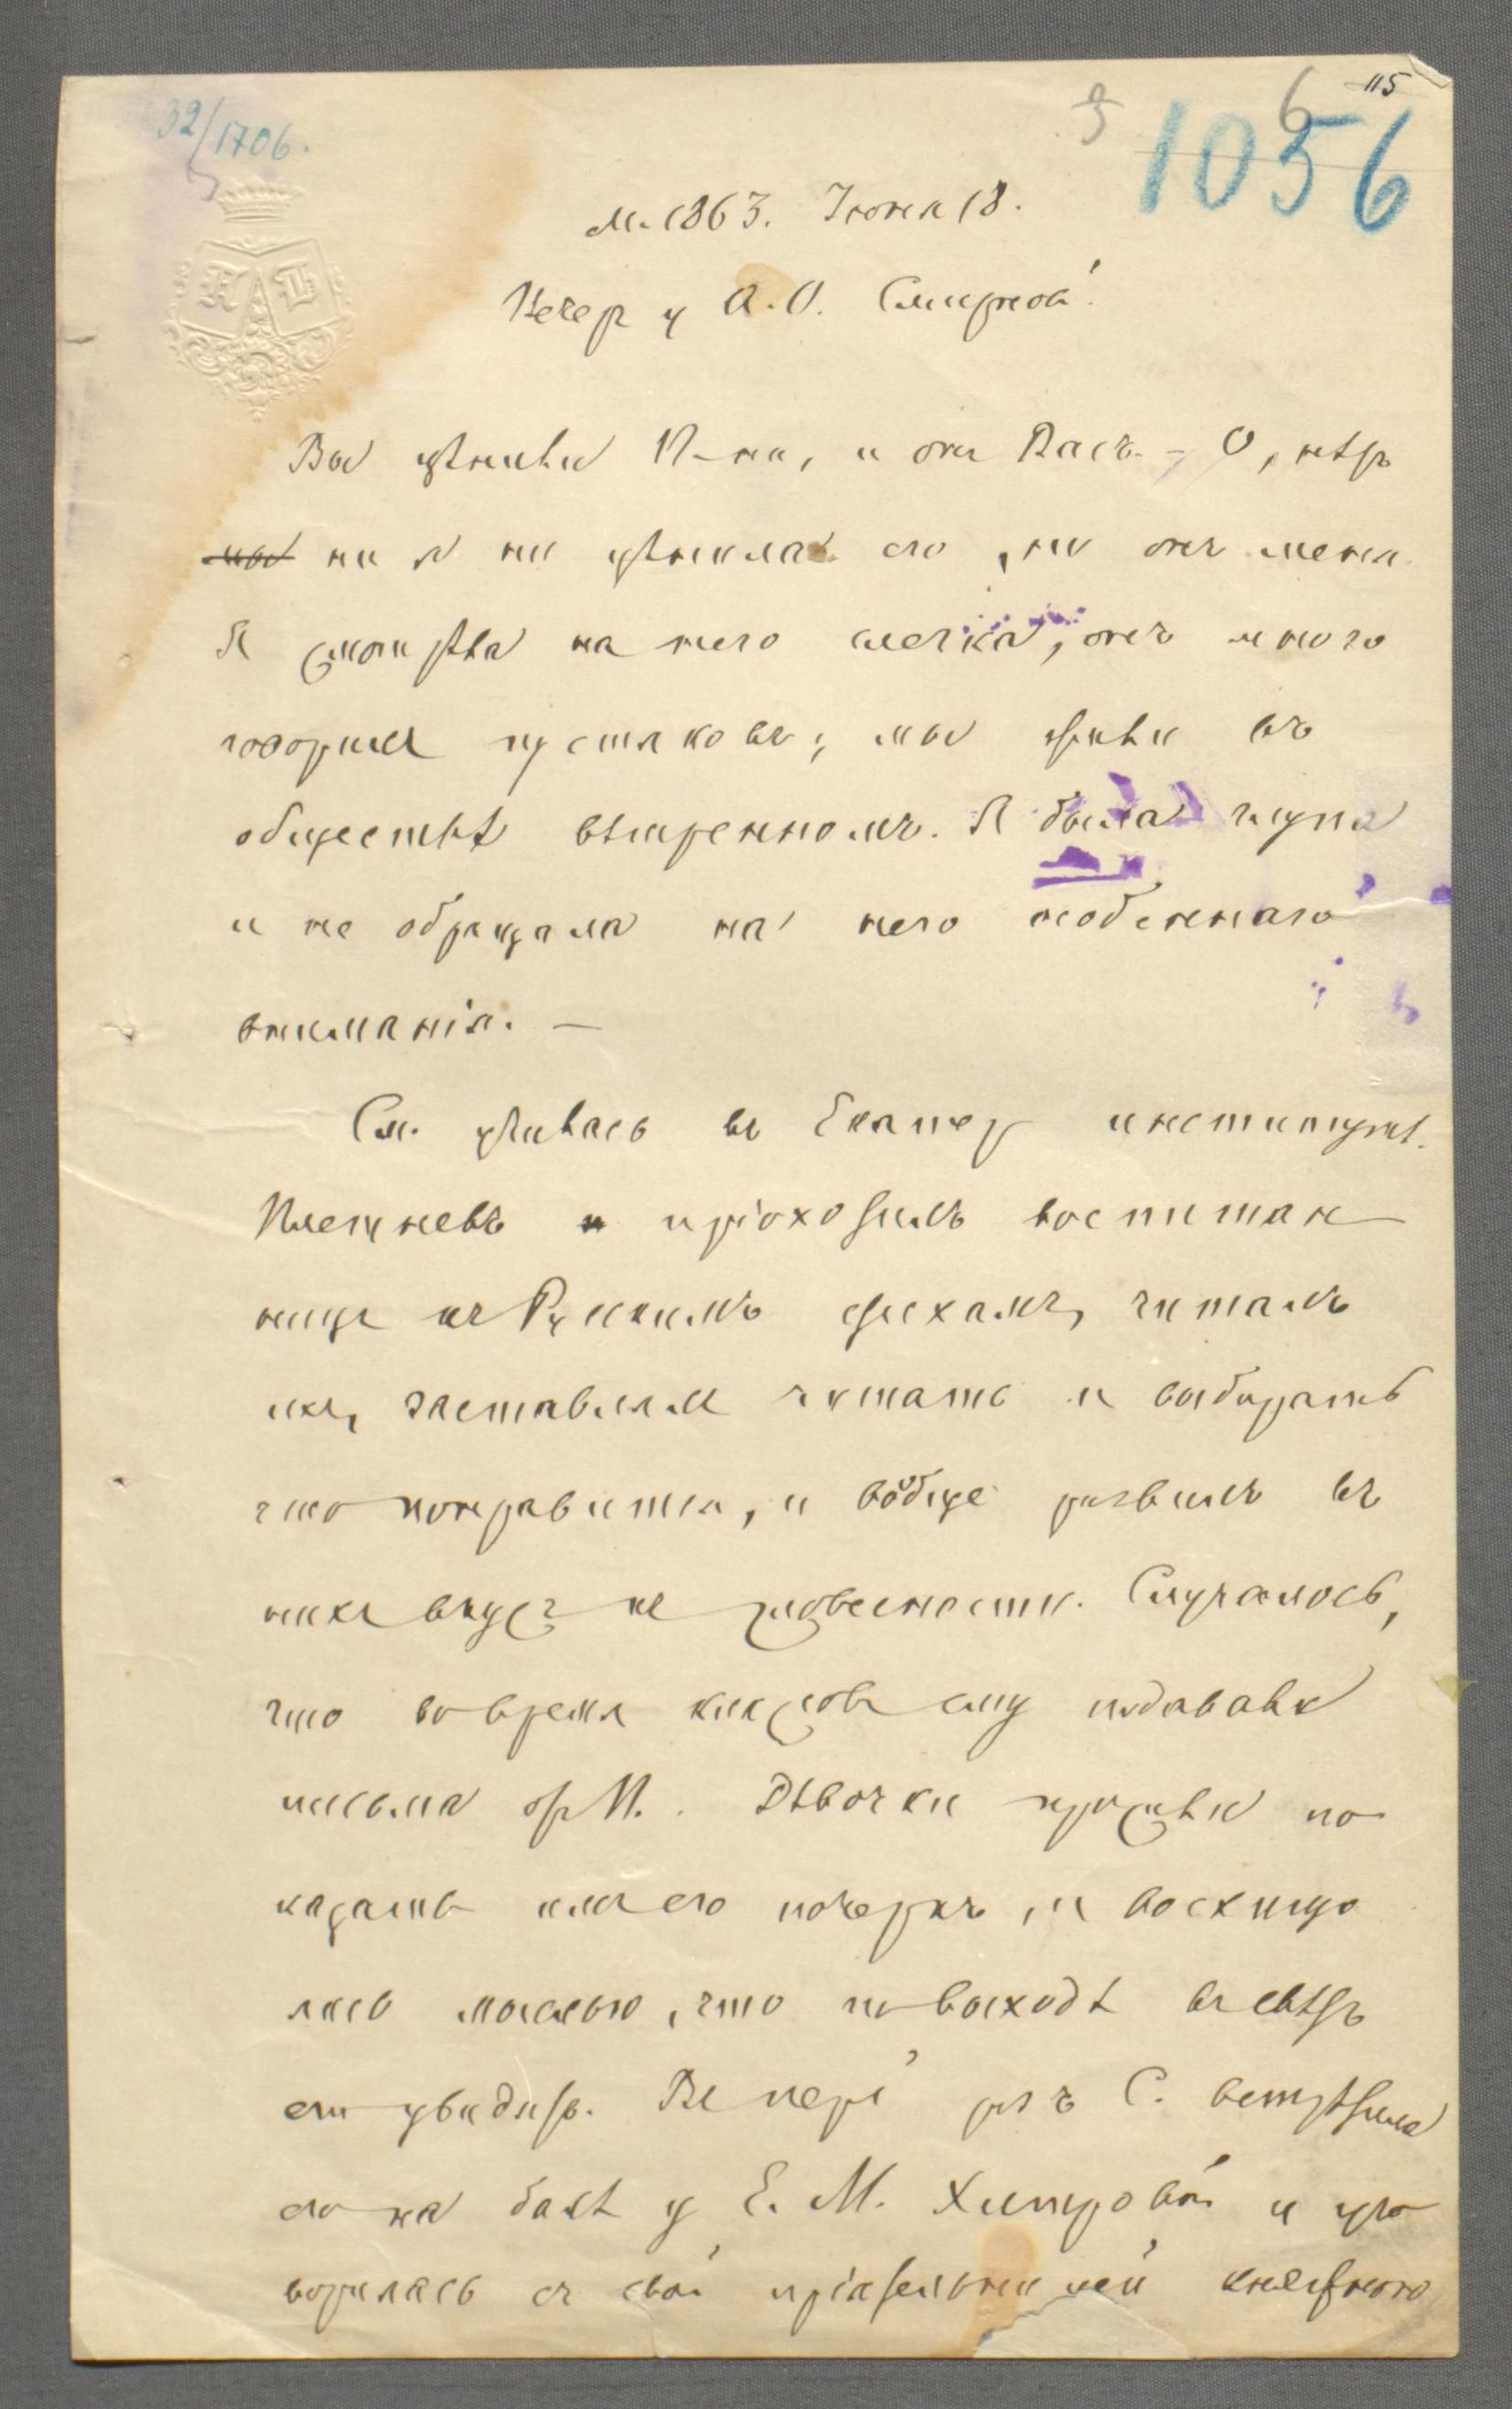 115
32/1706.
5 6
1056
М. 1863. Іюня 18.
Вечер у А. О. Смирной.
Вы цѣнили П-на, и онъ Васъ. – О, нѣтъ
мы ни я ни цѣнила его, ни онъ меня.
Я смотрѣла на него слегка, онъ много
говорил пустяковъ; мы жили въ
обществѣ вѣтренномъ. Я была глупа
и не обращала на него особеннаго
вниманія. —
См. училась въ Екатер институтѣ.
Плетневъ пріохотилъ воспитан
ницъ къ Русскимъ стихамъ, читалъ
ихъ, заставлял читать и выбирать
что понравится, и вообще развилъ въ
нихъ вкусъ къ словесности. Случалось,
что во время классовъ ему подавали
письма от П. Дѣвочки просили по
казать имъ его почеркъ, и восхища
лись мыслью, что по выходѣ въ свѣтъ
его увидятъ. В перй разъ С. встрѣтила
его на балѣ у Е. М. Хитровой и уго
ворилась съ свой пріятельницей княжною